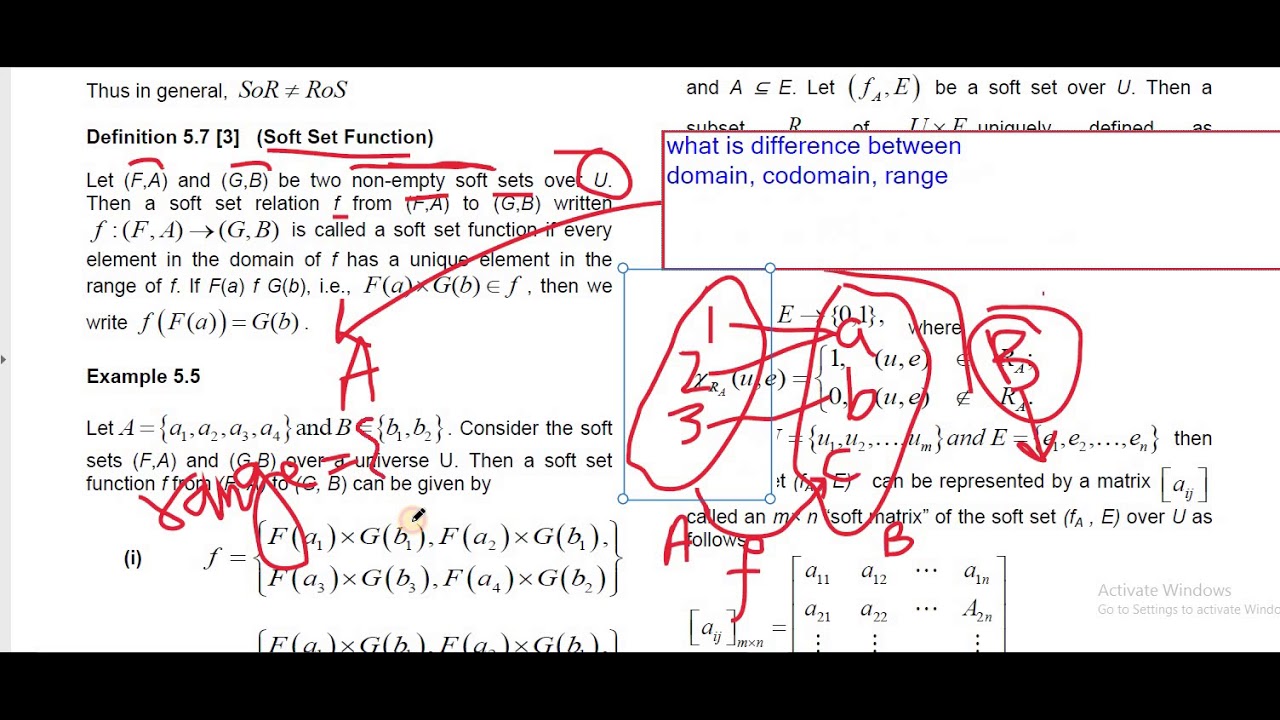 Thus in general, SoR ≠ RoS
Definition 5.7 [3] (Soft Set Function)
Let (F,A) and (G,B) be two non-empty soft sets over U.
Then a soft set relation f from (F,A) to (G,B) written
f : (F, A) → (G, B) is called a soft set function if every
element in the domain of f has a unique element in the
range of f. If F(a) f G(b), i.e., F(a) × G(b) ∈ f , then we
write f(F(a)) = G(b) .
A
Example 5.5
Let A = {a₁, a₂, a₃, a₄} and B = {b₁, b₂} . Consider the soft
sets (F,A) and (G,B) over a universe U. Then a soft set
function f from (F, A) to (G, B) can be given by
range = {
(i) f = {F(a₁)×G(b₁), F(a₂)×G(b₁),
F(a₃)×G(b₃), F(a₄)×G(b₂)}
and A ⊆ E. Let (f_A, E) be a soft set over U. Then a
subset R of U × E uniquely defined as
what is difference between
domain, codomain, range
E → {0,1}, where
χ_{R_A} (u,e) = {1, (u,e) ∈ R_A;
0, (u,e) ∉ R_A.
1 a
2 b
3 c
A f B
B
= {u₁, u₂, ..., u_m} and E = {e₁, e₂, ..., e_n} then
(f_A, E) can be represented by a matrix [a_ij]
called an m × n "soft matrix" of the soft set (f_A , E) over U as
follows
[a_ij]_{m×n} = [a₁₁ a₁₂ ⋯ a₁ₙ
a₂₁ a₂₂ ⋯ A₂ₙ
⋮ ⋮ ⋮
Activate Windows
Go to Settings to activate Windo